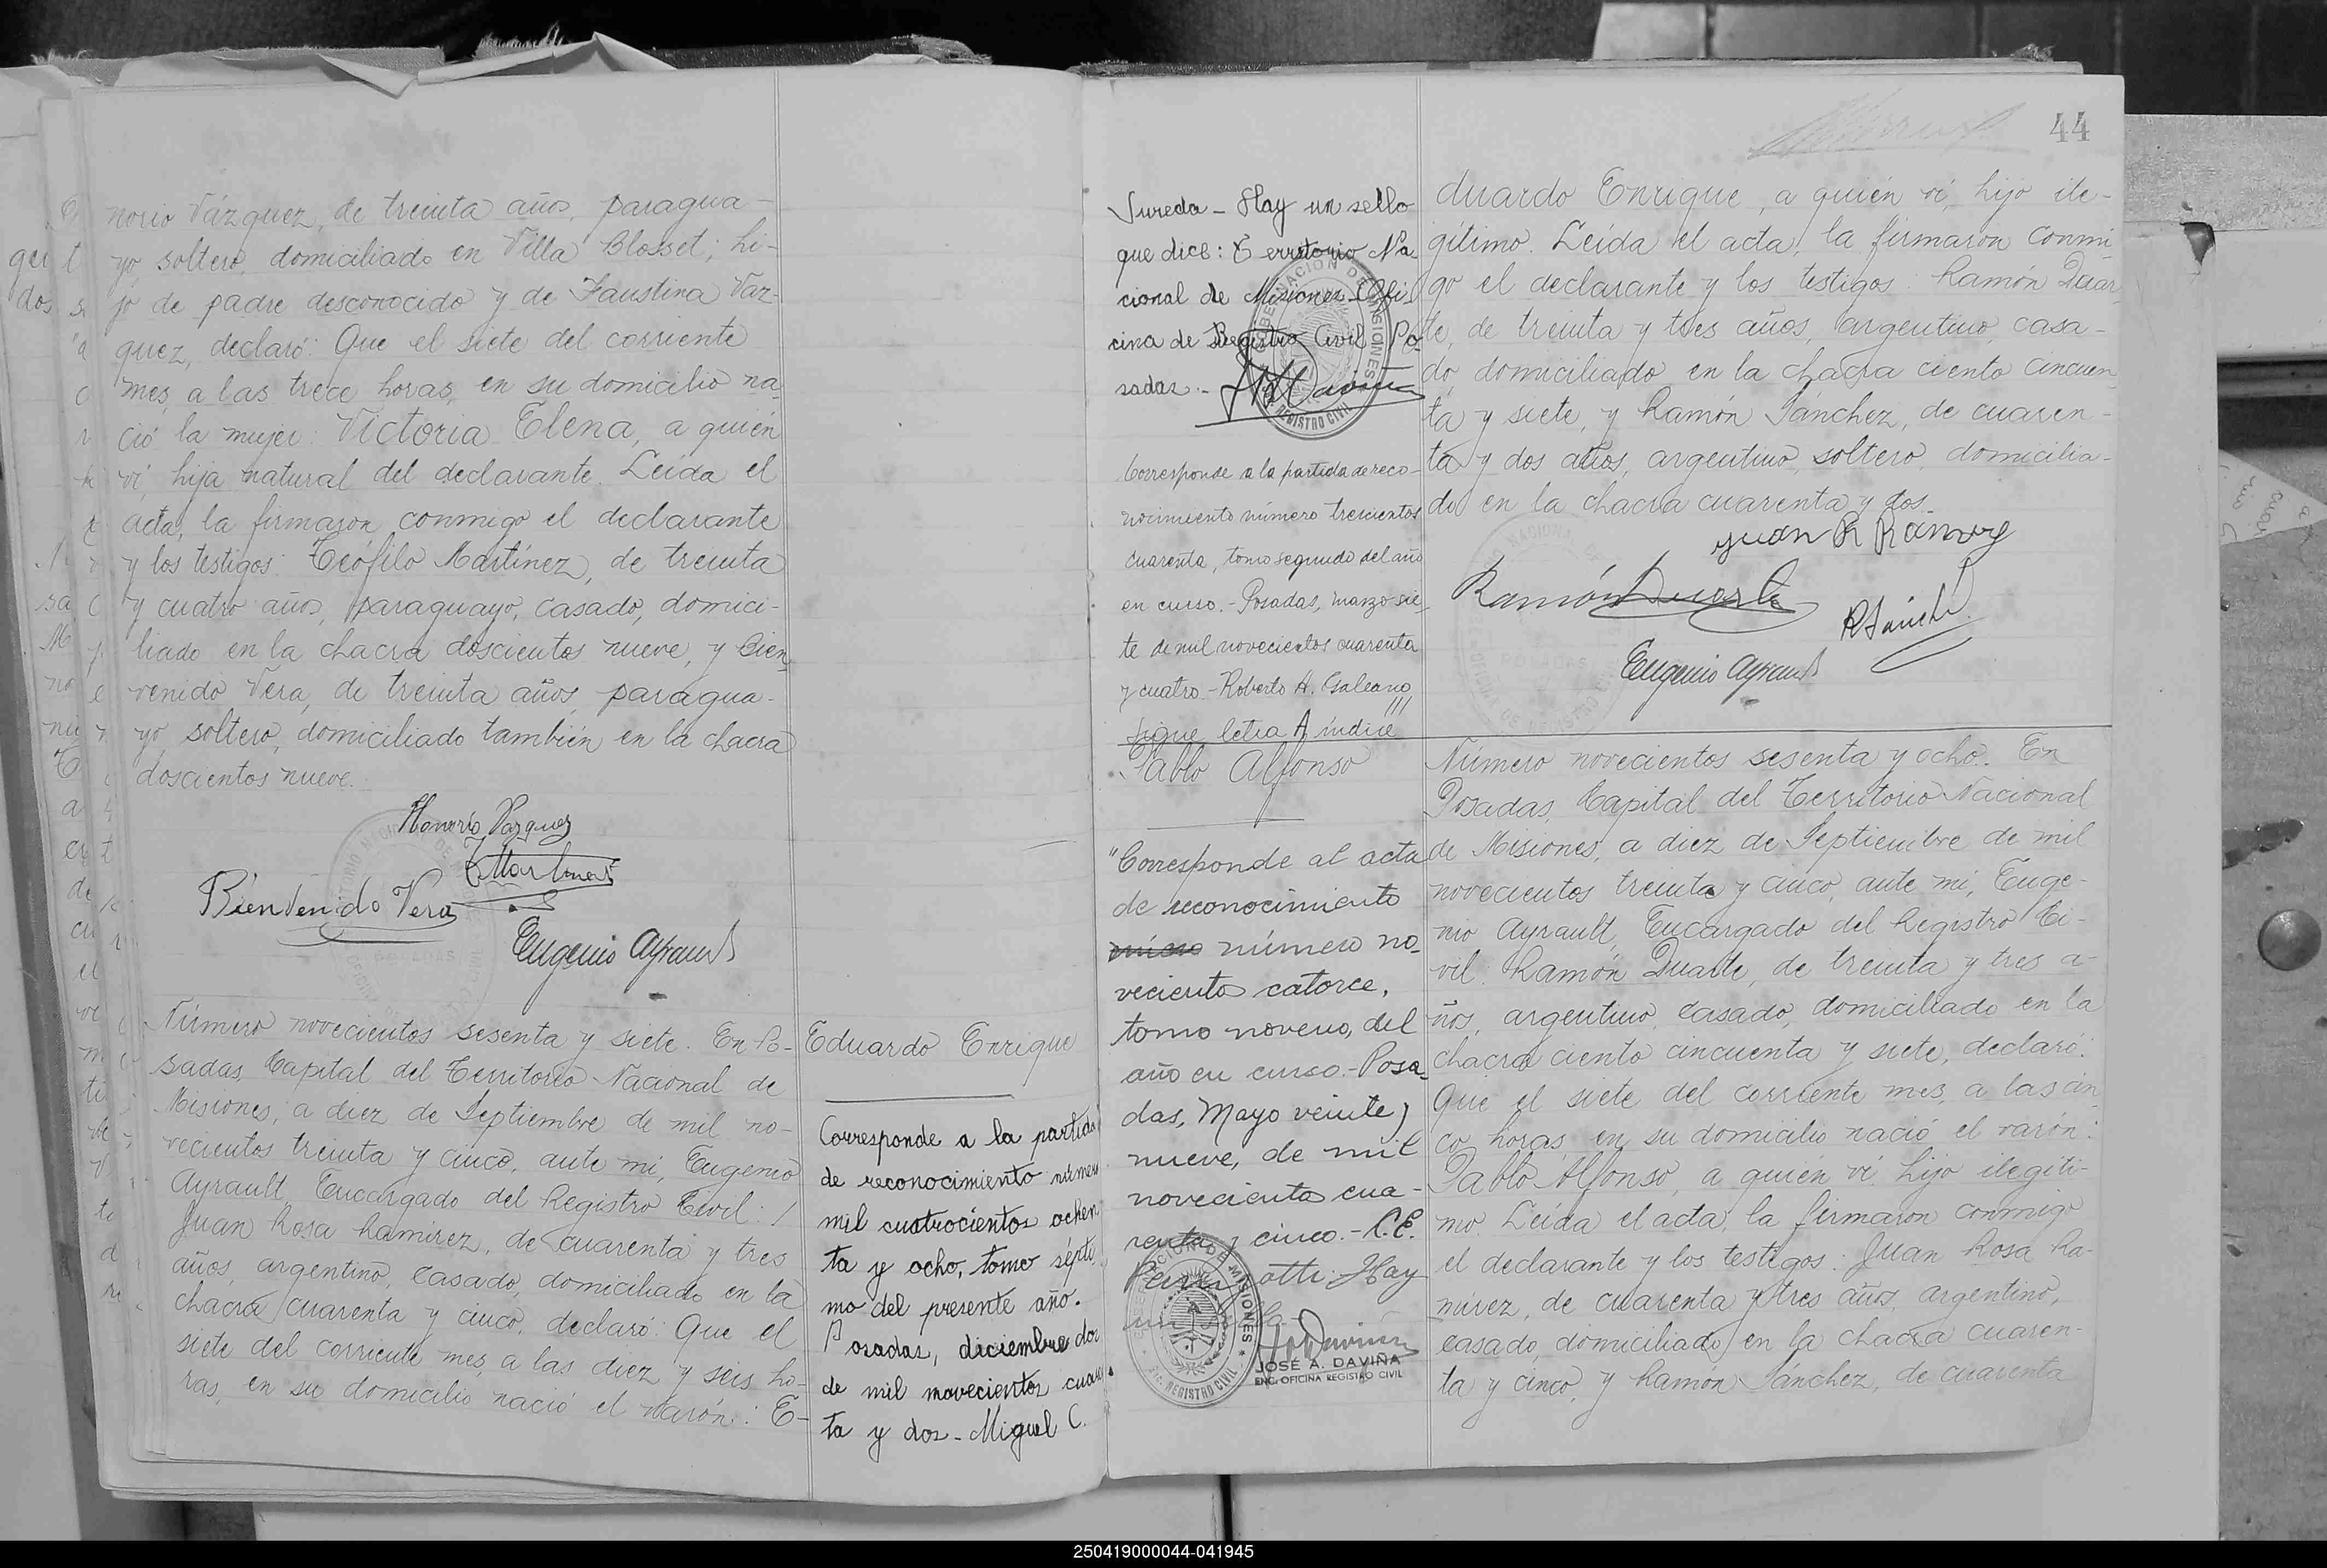 norio Vázquez, de treinta años, paragua-
yo soltero, domiciliado en Villa Blosset; hi-
jo de padre desconocido y de Faustina Váz-
quez, declaró: Que el siete del corriente
mes, a las trece horas, en su domicilio na-
ció la mujer: Victoria Elena, a quién
ví, hija natural del declarante. Leída el
acta, la firmaron conmigo el declarante
y los testigos: Teófilo Martínez, de treinta
y cuatro años, paraguayo, casado, domici-
liado en la chacra doscientos nueve, y Bien-
venido Vera, de treinta años, paragua-
yo, soltero, domiciliado también en la chacra
doscientos nueve.
Honorio Vazquez
TMartinez
Bienvenido Vera
Eugenio Ayrault
Número novecientos sesenta y siete. En Po-
sadas, Capital del Territorio Nacional de
Misiones, a diez de Septiembre de mil no-
vecientos treinta y cinco, ante mi, Eugenio
Ayrault, Encargado del Registro Civil: /
Juan Rosa Ramírez, de cuarenta y tres
años, argentino, casado, domiciliado en la
chacra cuarenta y cinco, declaró: Que el
siete del corriente mes, a las diez y seis ho-
ras, en su domicilio nació el varón: E-
Eduardo Enrique
Corresponde a la partida
de reconocimiento número
mil cuatrocientos ochen
ta y ocho, tomo sépti
mo del presente año.
Posadas, diciembre dos
de mil novecientos cuaren
ta y dos - Miguel C.
Sureda - Hay un sello
que dice: Territorio Na-
cional de Misiones - Ofi
cina de Registro Civil - Po-
sadas.-
Corresponde a la partida de reco-
nocimiento número trescientos
cuarenta, tomo segundo del año
en curso.- Posadas, marzo sie-
te de mil novecientos cuarenta
y cuatro.- Roberto A. Galeano
Sigue letra A índice
Pablo Alfonso
"Corresponde al acta
de reconocimiento
número no-
vecientos catorce,
tomo noveno, del
año en curso.- Posa-
das, Mayo veinte y
nueve, de mil
novecientos cua-
renta y cinco.- C.E.
Hay
JOSÉ A. DAVIÑA
ENC. OFICINA REGISTRO CIVIL
44
duardo Enrique, a quién ví, hijo ile-
gítimo. Leída el acta, la firmaron conmi-
go el declarante y los testigos: Ramón Duar-
te, de treinta y tres años, argentino, casa-
do domiciliado en la chacra ciento cincuen-
ta y siete, y Ramón Sánchez, de cuaren-
ta y dos años, argentino, soltero, domicilia-
do en la chacra cuarenta y dos.
Juan R Ramirez
Ramón Duarte
RSanchez
Eugenio Ayrault
Número novecientos sesenta y ocho. En
Posadas, Capital del Territorio Nacional
de Misiones, a diez de Septiembre de mil
novecientos treinta y cinco, ante mi, Euge-
nio Ayrault, Encargado del Registro Ci-
vil: Ramón Duarte, de treinta y tres a-
ños, argentino, casado, domiciliado en la
chacra ciento cincuenta y siete, declaró:
Que el siete del corriente mes, a las cin
co horas, en su domicilio nació el varón:
Pablo Alfonso, a quién ví, hijo ilegíti-
mo. Leída el acta, la firmaron conmigo
el declarante y los testigos: Juan Rosa Ra-
mírez, de cuarenta y tres años, argentino,
casado, domiciliado en la chacra cuaren-
ta y cinco, y Ramón Sánchez, de cuarenta
250419000044-041945